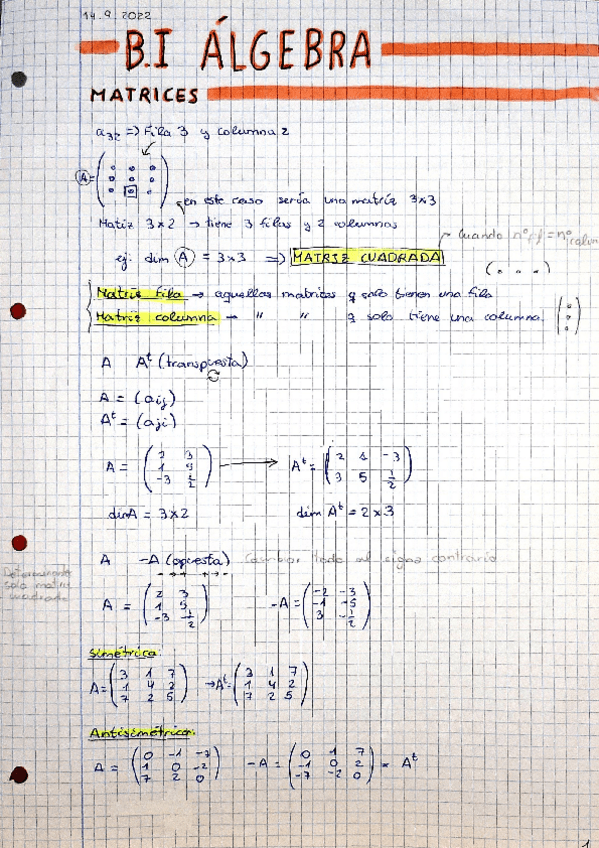 14.9.2022
B.I ÁLGEBRA
MATRICES
a₃₂ => Fila 3 y columna 2
A =
en este caso sería una matriz 3x3
Matiz 3x2 → tiene 3 filas y 2 columnas
Cuando nº f = nº colum
ej: dim A = 3x3 => MATRIZ CUADRADA
Matriz fila → aquellas matrices q solo tienen una fila
Matriz columna → " " q solo tiene una columna
A Aᵗ (transpuesta)
A = (aij)
Aᵗ = (aji)
A = ( 2 3 / 1 5 / -3 1/2 ) → Aᵗ = ( 2 1 -3 / 3 5 1/2 )
dim A = 3x2 dim Aᵗ = 2x3
A -A (opuesta) Cambiar todo al signo contrario
Determinante solo matriz cuadrada
A = ( 2 3 / 1 5 / -3 1/2 ) -A = ( -2 -3 / -1 -5 / 3 -1/2 )
Simétrica
A = ( 3 1 7 / 1 4 2 / 7 2 5 ) → Aᵗ = ( 3 1 7 / 1 4 2 / 7 2 5 )
Antisimétrica:
A = ( 0 -1 -7 / 1 0 -2 / 7 2 0 ) -A = ( 0 1 7 / -1 0 2 / -7 -2 0 ) = Aᵗ
1